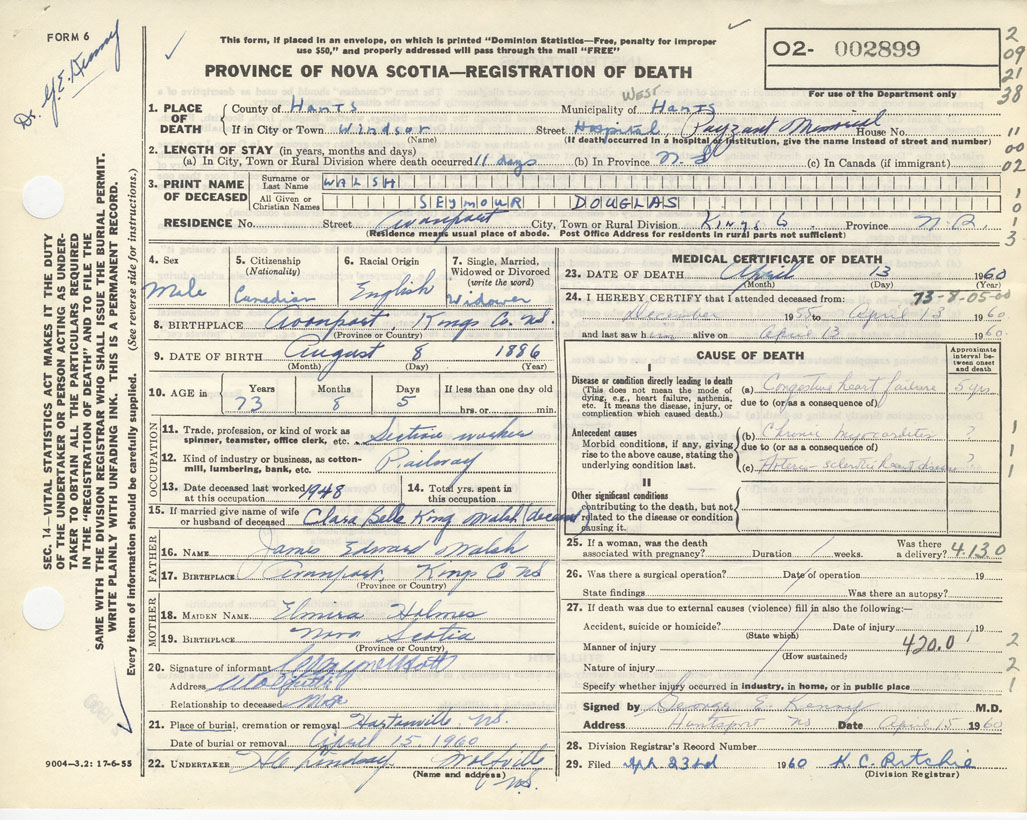 FORM 6
This form, if placed in an envelope, on which is printed "Dominion Statistics—Free, penalty for improper
use $50," and properly addressed will pass through the mail "FREE"
PROVINCE OF NOVA SCOTIA—REGISTRATION OF DEATH
O2- 002899
For use of the Department only
2
09
21
38
Dr. G. E. Kenny
SEC. 14—VITAL STATISTICS ACT MAKES IT THE DUTY
OF THE UNDERTAKER OR PERSON ACTING AS UNDER-
TAKER TO OBTAIN ALL THE PARTICULARS REQUIRED
IN THE "REGISTRATION OF DEATH" AND TO FILE THE
SAME WITH THE DIVISION REGISTRAR WHO SHALL ISSUE THE BURIAL PERMIT.
WRITE PLAINLY WITH UNFADING INK. THIS IS A PERMANENT RECORD.
Every item of information should be carefully supplied. (See reverse side for instructions.)
1. PLACE OF DEATH
County of Hants Municipality of West Hants
If in City or Town Windsor Street Hospital, Payzant Memorial House No.
(Name) (If death occurred in a hospital or institution, give the name instead of street and number)
11
00
02
2. LENGTH OF STAY (in years, months and days)
(a) In City, Town or Rural Division where death occurred 11 days (b) In Province N.S. (c) In Canada (if immigrant)
3. PRINT NAME OF DECEASED
Surname or Last Name WALSH
All Given or Christian Names SEYMOUR DOUGLAS
1
0
1
3
RESIDENCE No. Street Avonport City, Town or Rural Division Kings Co Province
(Residence means usual place of abode. Post Office Address for residents in rural parts not sufficient)
4. Sex
Male
5. Citizenship
(Nationality)
Canadian
6. Racial Origin
English
7. Single, Married,
Widowed or Divorced
(write the word)
Widower
8. BIRTHPLACE Avonport, Kings Co. NS.
(Province or Country)
9. DATE OF BIRTH August 8 1886
(Month) (Day) (Year)
10. AGE in
Years 73
Months 8
Days 5
If less than one day old
hrs. or min.
OCCUPATION
11. Trade, profession, or kind of work as
spinner, teamster, office clerk, etc. Section worker
12. Kind of industry or business, as cotton-
mill, lumbering, bank, etc. Railway
13. Date deceased last worked
at this occupation 1948
14. Total yrs. spent in
this occupation
15. If married give name of wife
or husband of deceased Clara Belle King Walsh (deceased
FATHER
16. NAME James Edward Walsh
17. BIRTHPLACE Avonport, Kings Co NS
(Province or Country)
MOTHER
18. MAIDEN NAME Elmira Holmes
19. BIRTHPLACE Nova Scotia
(Province or Country)
20. Signature of informant
Address Wolfville
Relationship to deceased
21. Place of burial, cremation or removal NS.
Date of burial or removal April 15 1960
22. UNDERTAKER Lindsay Wolfville
(Name and address) N.S.
9004—3.2: 17-6-55
MEDICAL CERTIFICATE OF DEATH
23. DATE OF DEATH April 13 1960
(Month) (Day) (Year)
24. I HEREBY CERTIFY that I attended deceased from: 73-8-05-00
December 1955 to April 13 1960
and last saw him alive on April 13 1960
CAUSE OF DEATH
Approximate
interval be-
tween onset
and death
I
Disease or condition directly leading to death
(This does not mean the mode of
dying, e.g., heart failure, asthenia,
etc. It means the disease, injury, or
complication which caused death.)
(a) Congestive heart failure 5 yrs
due to (or as a consequence of)
Antecedent causes
Morbid conditions, if any, giving
rise to the above cause, stating the
underlying condition last.
(b) Chronic myocarditis ?
due to (or as a consequence of)
(c) Arterio-sclerotic heart disease ?
1
1
1
II
Other significant conditions
contributing to the death, but not
related to the disease or condition
causing it.
25. If a woman, was the death
associated with pregnancy? Duration weeks. Was there
a delivery? 4130
26. Was there a surgical operation? Date of operation 19
State findings Was there an autopsy?
27. If death was due to external causes (violence) fill in also the following:—
Accident, suicide or homicide? Date of injury 19
(State which)
Manner of injury 420.0
(How sustained)
Nature of injury
Specify whether injury occurred in industry, in home, or in public place
1
2
2
1
Signed by George E. Kenny M.D.
Address Hantsport NS Date April 15 1960
28. Division Registrar's Record Number
29. Filed Apl 23rd 1960 K. C. Ritchie
(Division Registrar)